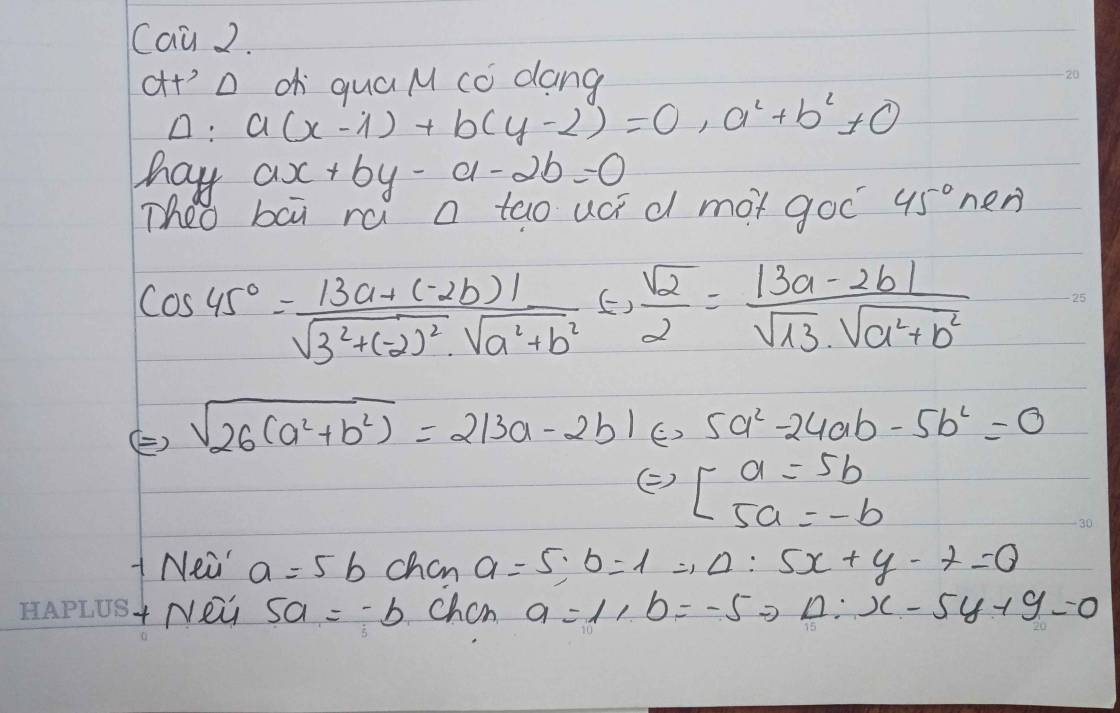 Câu 2.
đt' Δ đi qua M có dạng
Δ: a(x-1) + b(y-2) = 0, a² + b² ≠ 0
hay ax + by - a - 2b = 0
Theo bài ra Δ tạo với d một góc 45° nên
Cos 45° = |3a + (-2b)| / √3² + (-2)² . √a² + b² ⇔ √2 / 2 = |3a - 2b| / √13 . √a² + b²
⇔ √26(a² + b²) = 2|3a - 2b| ⇔ 5a² - 24ab - 5b² = 0
⇔ [ a = 5b
5a = -b
+ Nếu a = 5b chọn a = 5; b = 1 ⇒ Δ: 5x + y - 7 = 0
+ Nếu 5a = -b chọn a = 1, b = -5 ⇒ Δ: x - 5y + 9 = 0
HAPLUS
0 5 10 15 20
20
25
30